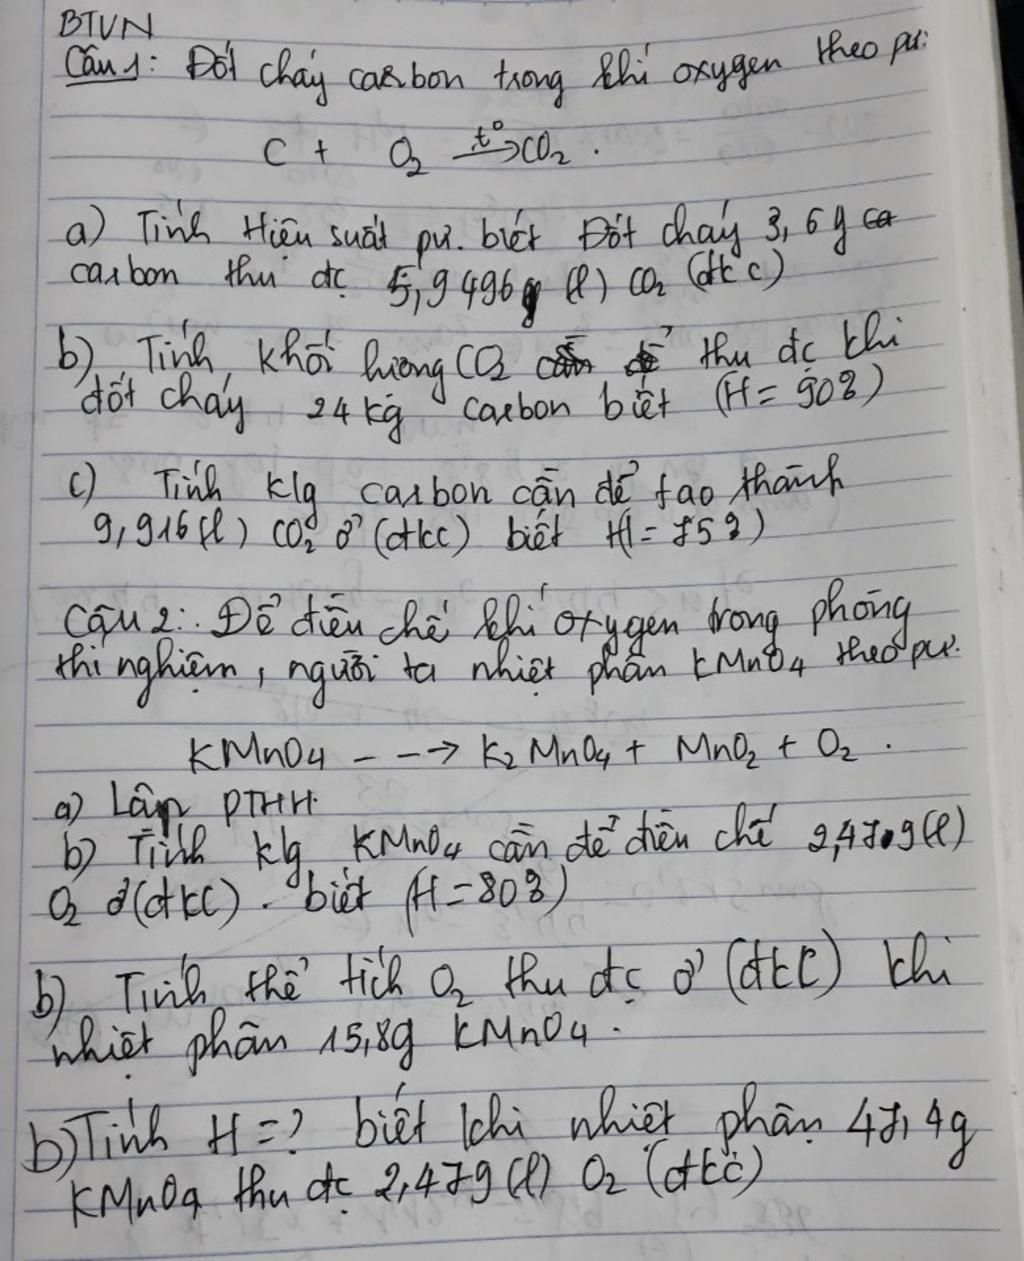 BTVN
Câu 1: Đốt cháy carbon trong khí oxygen theo pư:
C + O₂ t° → CO₂.
a) Tính Hiệu suất pư. biết Đốt cháy 3,6g
carbon thu đc 5,9496 (l) CO₂ (đkc)
b) Tính khối lượng CO₂ thu đc khi
đốt cháy 24 kg carbon biết (H = 90%)
c) Tính klg carbon cần để tạo thành
9,916 (l) CO₂ ở (đkc) biết H = 75%)
Câu 2: Để điều chế khí oxygen trong phòng
thí nghiệm, người ta nhiệt phân KMnO₄ theo pư.
KMnO₄ - - → K₂MnO₄ + MnO₂ + O₂.
a) Lập PTHH.
b) Tính klg KMnO₄ cần để điều chế 2,479 (l)
O₂ ở (đkc). biết (H = 80%)
b) Tính thể tích O₂ thu đc ở (đkc) khi
nhiệt phân 15,8g KMnO₄.
b) Tính H = ? biết khi nhiệt phân 47,4g
KMnO₄ thu đc 2,479 (l) O₂ (đkc)